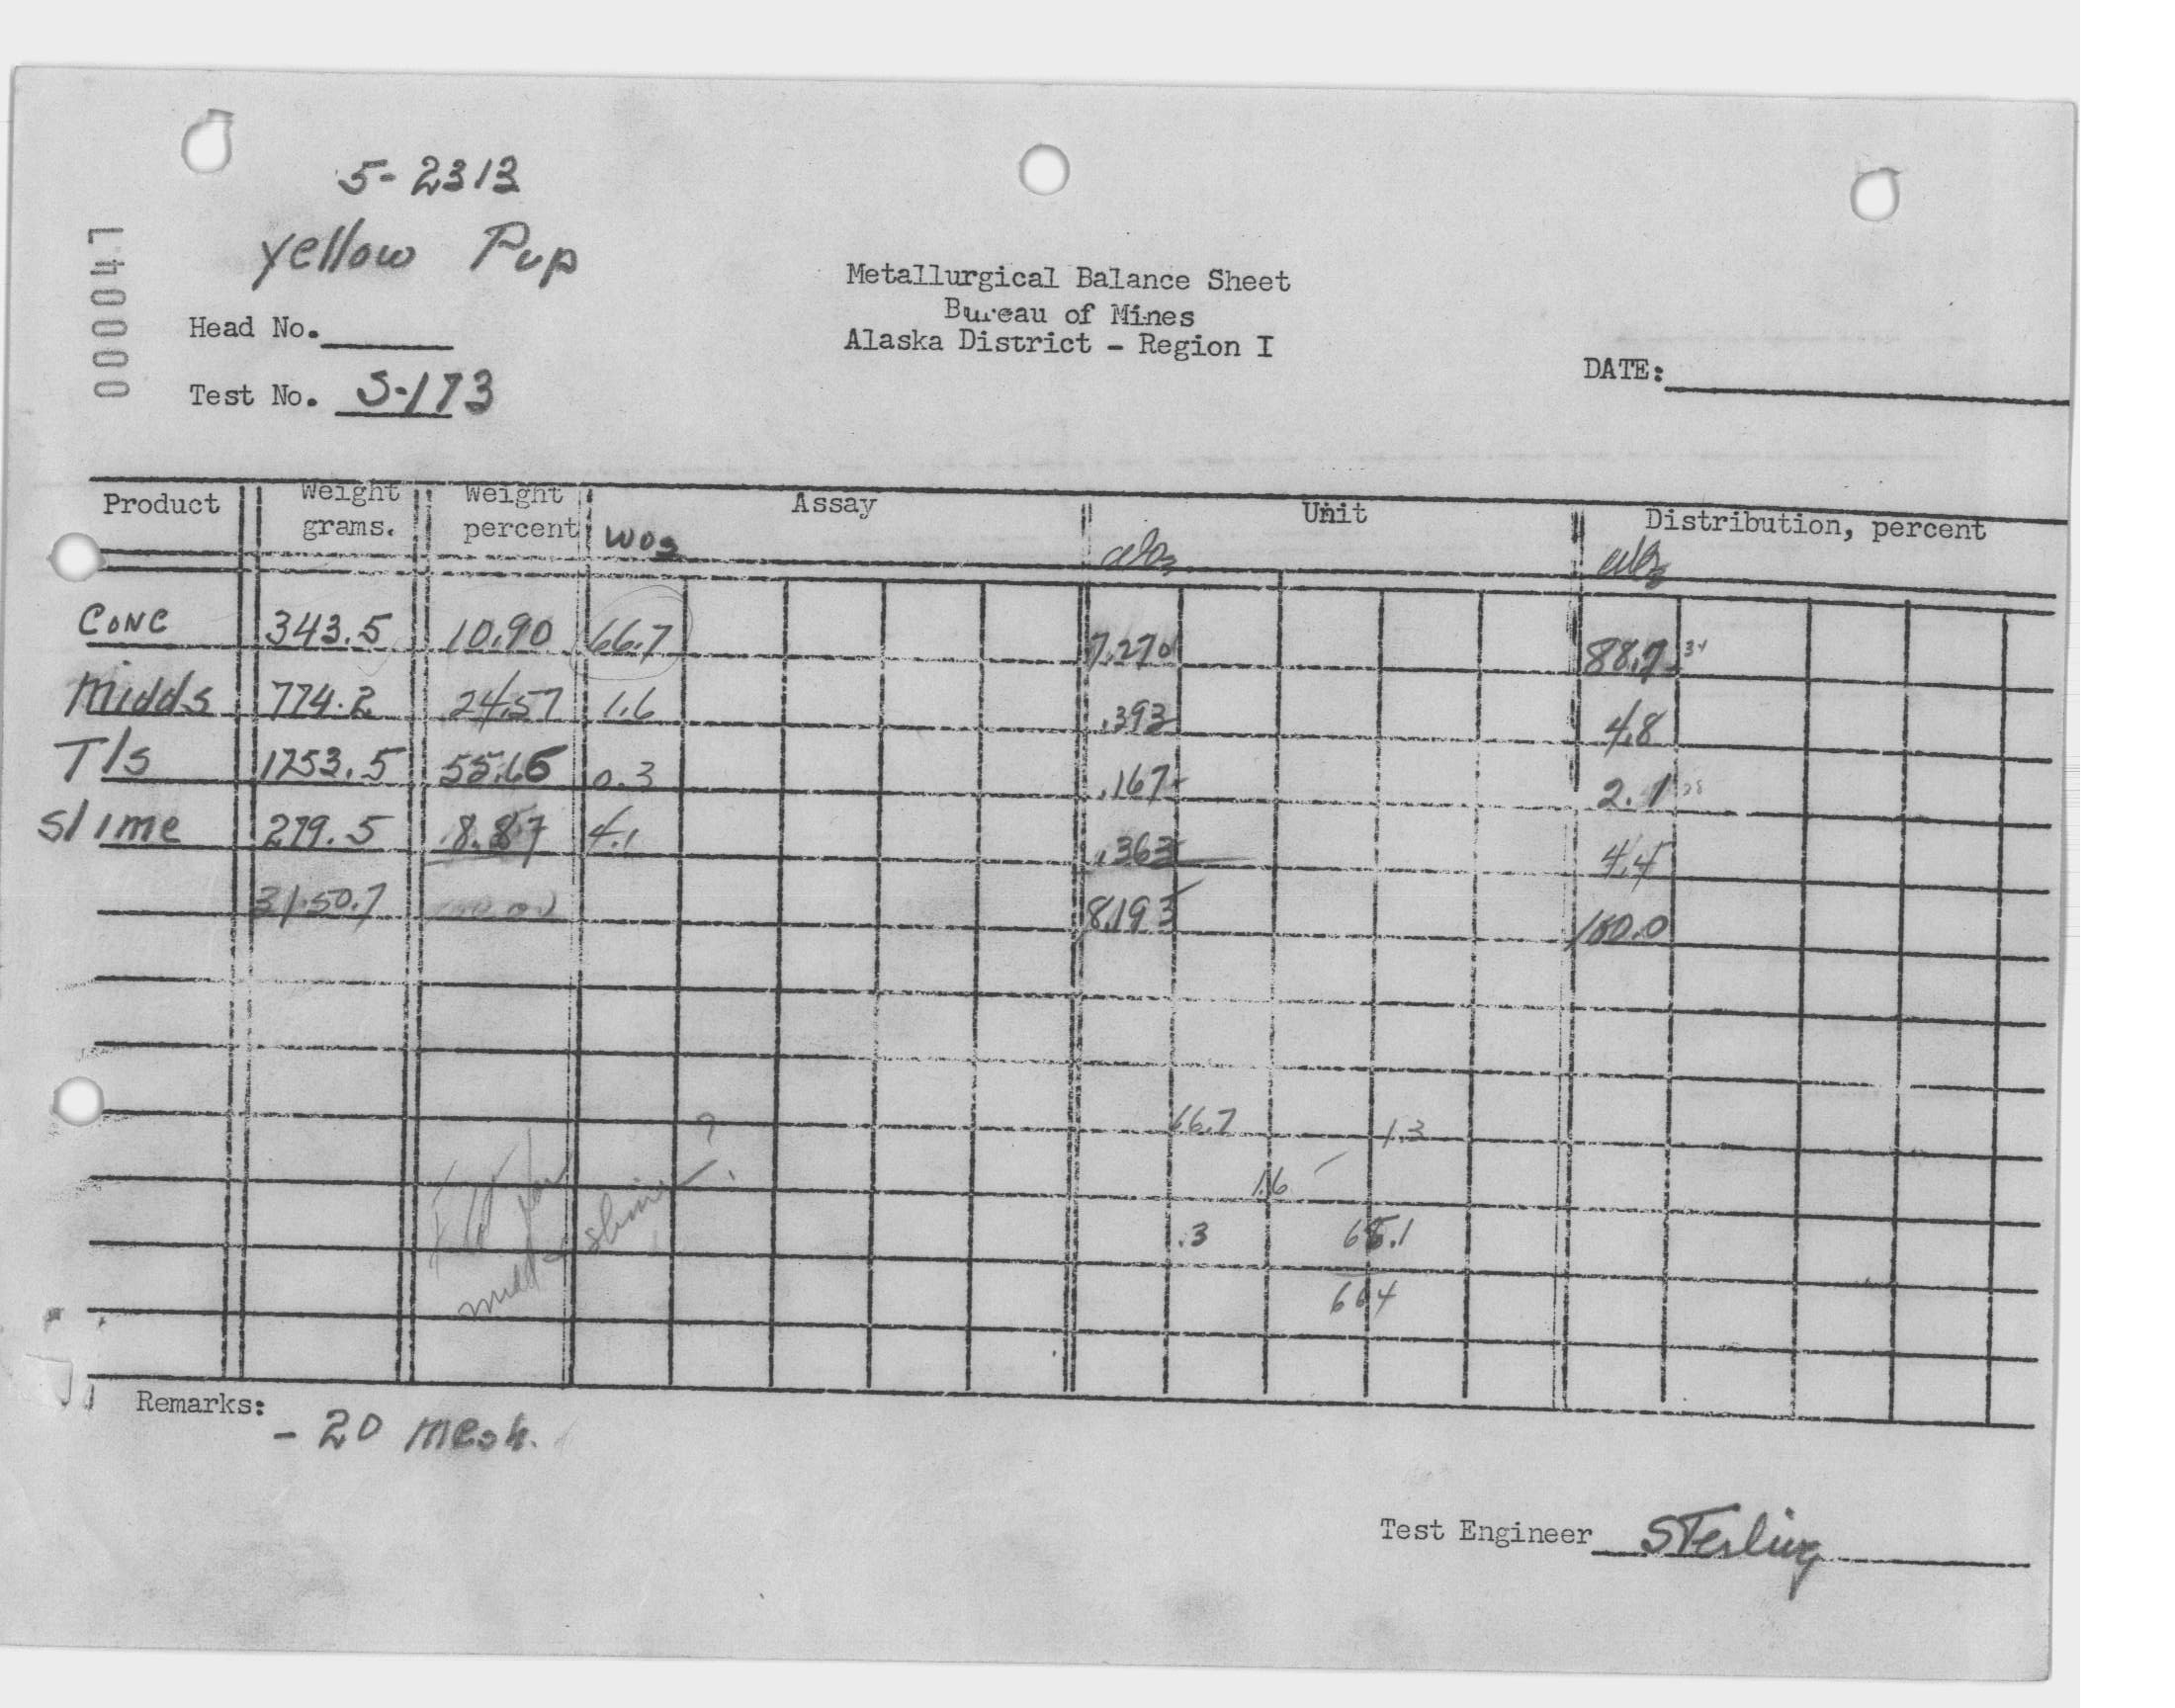 5-2313
Yellow Pup
L40000
Metallurgical Balance Sheet
Bureau of Mines
Alaska District - Region I
Head No.
DATE:
Test No. S-173
Product Weight grams. Weight percent Assay Unit Distribution, percent
WO3 WO3 WO3
CONC 343.5 10.90 66.7 7.270 88.7 34
Midds 774.2 24.57 1.6 .393 4.8
T/s 1753.5 55.65 0.3 .167 2.1
Slime 279.5 8.87 4.1 .363 4.4
3150.7 100.00 8.193 100.0
66.7 1.3
1.6
.3 65.1
66.4
?
midds slime
Remarks: - 20 mesh.
Test Engineer Sterling